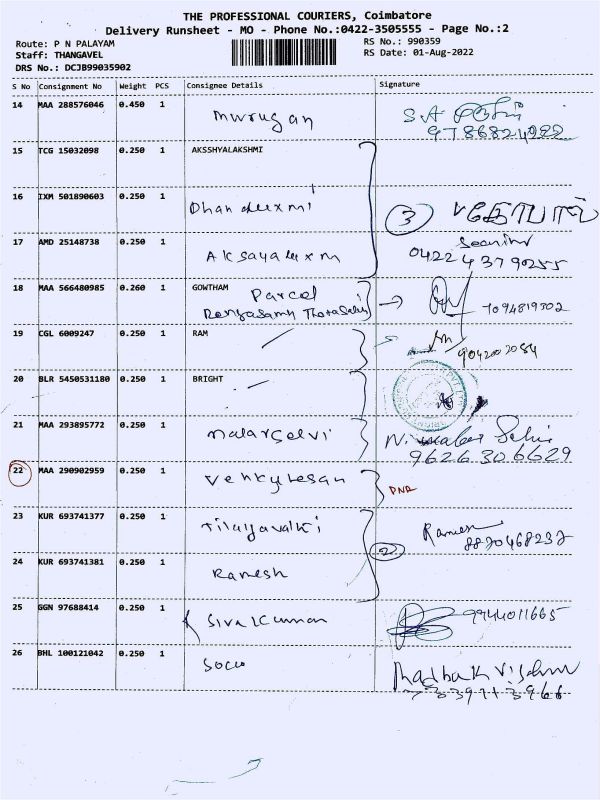 THE PROFESSIONAL COURIERS, Coimbatore
Delivery Runsheet - MO - Phone No.:0422-3505555 - Page No.:2
Route: P N PALAYAM
Staff: THANGAVEL
DRS No.: DCJB99035902
RS No.: 990359
RS Date: 01-Aug-2022
S No Consignment No Weight PCS Consignee Details Signature
14 MAA 288576046 0.450 1 murugan
15 TCG 15032098 0.250 1 AKSSHYALAKSHMI
16 IXM 501890603 0.250 1 3
17 AMD 25148738 0.250 1 04224379255
18 MAA 566480985 0.260 1 GOWTHAM Parcel 7094819302
19 CGL 6009247 0.250 1 RAM 9042002084
20 BLR 5450531180 0.250 1 BRIGHT
21 MAA 293895772 0.250 1 malarselvi 9626306629
22 MAA 290902959 0.250 1
23 KUR 693741377 0.250 1 Ramesh 8870468237
24 KUR 693741381 0.250 1 Ramesh 2
25 GGN 97688414 0.250 1 9944011665
26 BHL 100121042 0.250 1